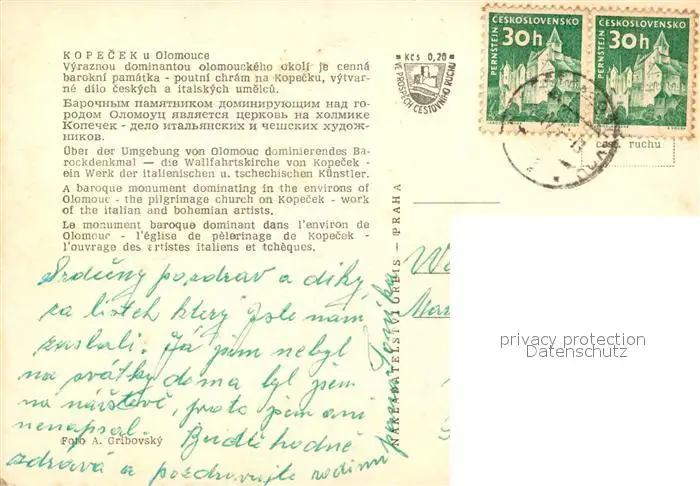 KOPEČEK u Olomouce
Výraznou dominantou olomouckého okolí je cenná
barokní památka - poutní chrám na Kopečku, výtvar-
né dílo českých a italských umělců.
Барочным памятником доминирующим над го-
родом Оломоуц является церковь на холмике
Копечек - дело итальянских и чешских худож-
ников.
Über der Umgebung von Olomouc dominierendes Ba-
rockdenkmal — die Wallfahrtskirche von Kopeček -
ein Werk der italienischen u. tschechischen Künstler.
A baroque monument dominating in the environs of
Olomouc - the pilgrimage church on Kopeček - work
of the italian and bohemian artists.
Le monument baroque dominant dans l'environ de
Olomouc - l'église de pèlerinage de Kopeček -
l'ouvrage des artistes italiens et tchèques.
Srdečný pozdrav a díky
za lístek který jste nám
zaslali. Já jsem nebyl
na svátky doma byl jsem
na návštěvě, proto jsem ani
nenapsal. Buďte hodně
zdravá a pozdravujte rodinu
Foto A. Gribovský
NAKLADATELSTVÍ ORBIS — PRAHA
Kčs 0,20
VE PROSPĚCH CESTOVNÍHO RUCHU
ČESKOSLOVENSKO
PERNŠTEJN
30h
ČESKOSLOVENSKO
PERNŠTEJN
30h
cest. ruchu
privacy protection
Datenschutz